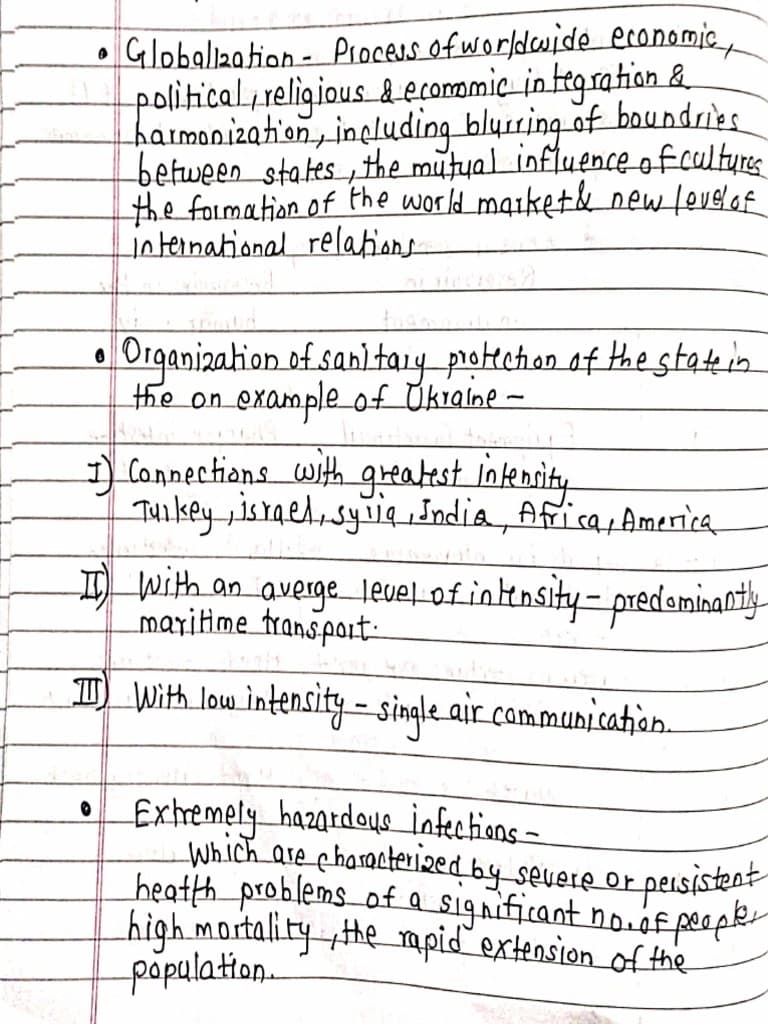 • Globalization - Process of worldwide economic,
political, religious & economic integration &
harmonization, including blurring of boundries
between states, the mutual influence of cultures
the formation of the world market & new level of
international relations
• Organization of sanitary protection of the state in
the on example of Ukraine -
I) Connections with greatest intensity
Turkey, israel, syria, India, Africa, America
II) With an averge level of intensity - predominantly
maritime transport.
III) With low intensity - single air communication.
• Extremely hazardous infections -
Which are characterized by severe or persistent
health problems of a significant no. of people,
high mortality, the rapid extension of the
population.